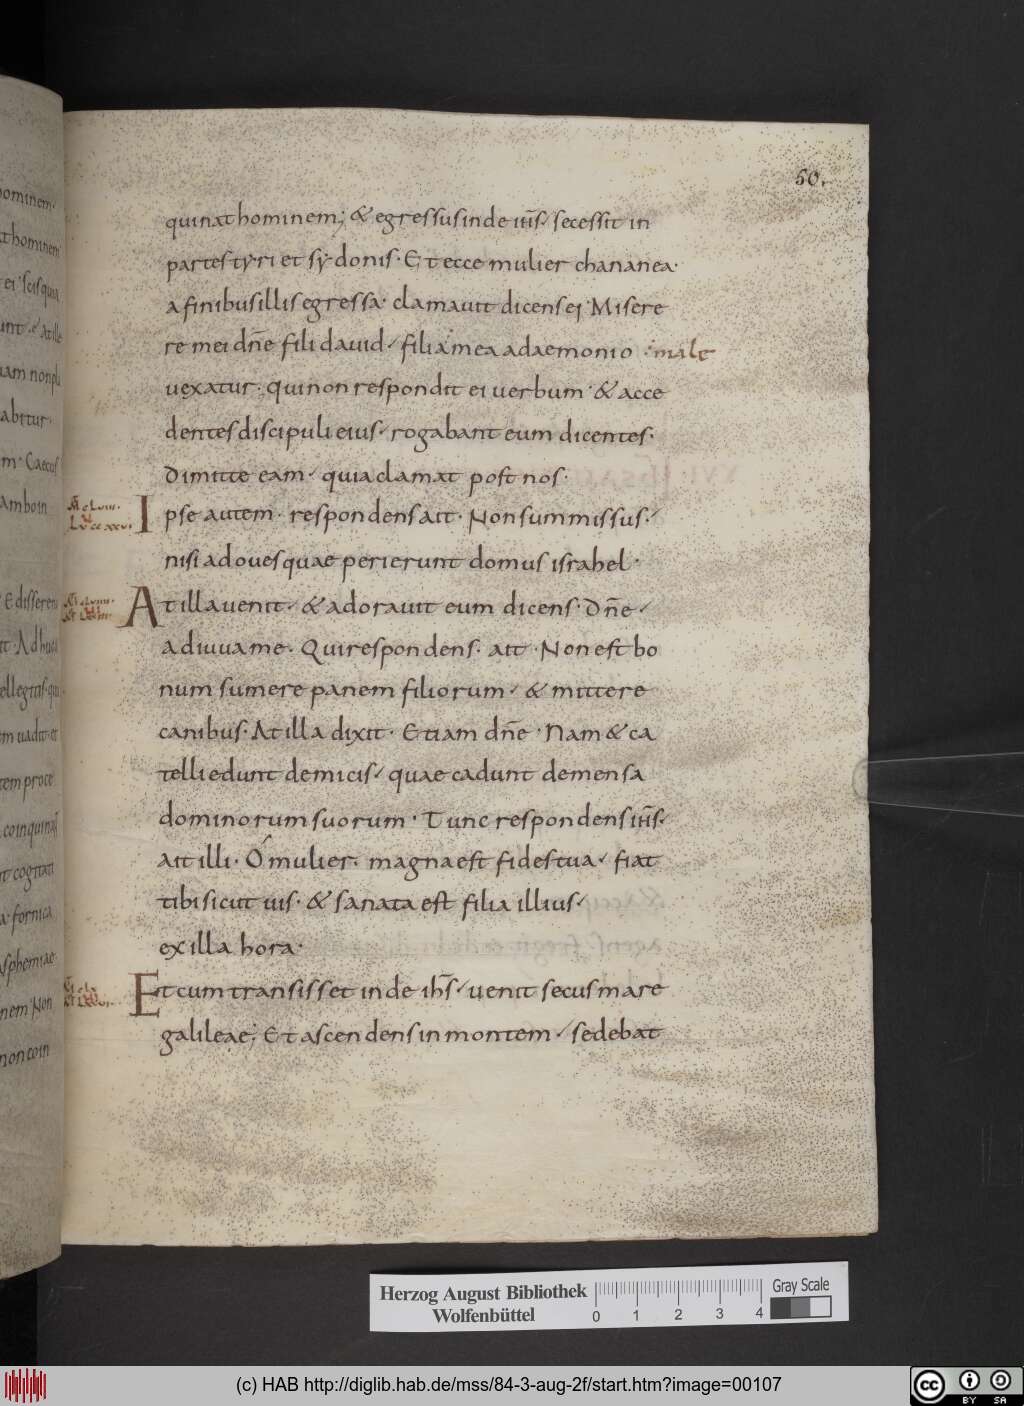 50.
quinat hominem; & egressus inde ih̅s secessit in
partes tyri et sydonis. Et ecce mulier chananea.
a finibus illis egressa. clamavit dicens ei. Misere
re mei dn̅e fili david, filia mea a daemonio male
vexatur. qui non respondit ei verbum. & acce
dentes discipuli eius. rogabant eum dicentes.
Dimitte eam, quia clamat post nos.
Ipse autem. respondens ait. Non sum missus.
nisi ad oves quae perierunt domus israhel.
At illa venit, & adoravit eum dicens. Dn̅e,
adiuva me. Qui respondens. ait. Non est bo
num sumere panem filiorum, & mittere
canibus. At illa dixit. Etiam dn̅e. Nam & ca
telli edunt de micis, quae cadunt de mensa
dominorum suorum. Tunc respondens ih̅s.
ait illi. O mulier. magna est fides tua, fiat
tibi sicut vis. & sanata est filia illius,
ex illa hora.
Et cum transisset inde ih̅s, venit secus mare
galileae; Et ascendens in montem, sedebat
Herzog August Bibliothek
Wolfenbüttel
0 1 2 3 4
Gray Scale
(c) HAB http://diglib.hab.de/mss/84-3-aug-2f/start.htm?image=00107
cc BY SA